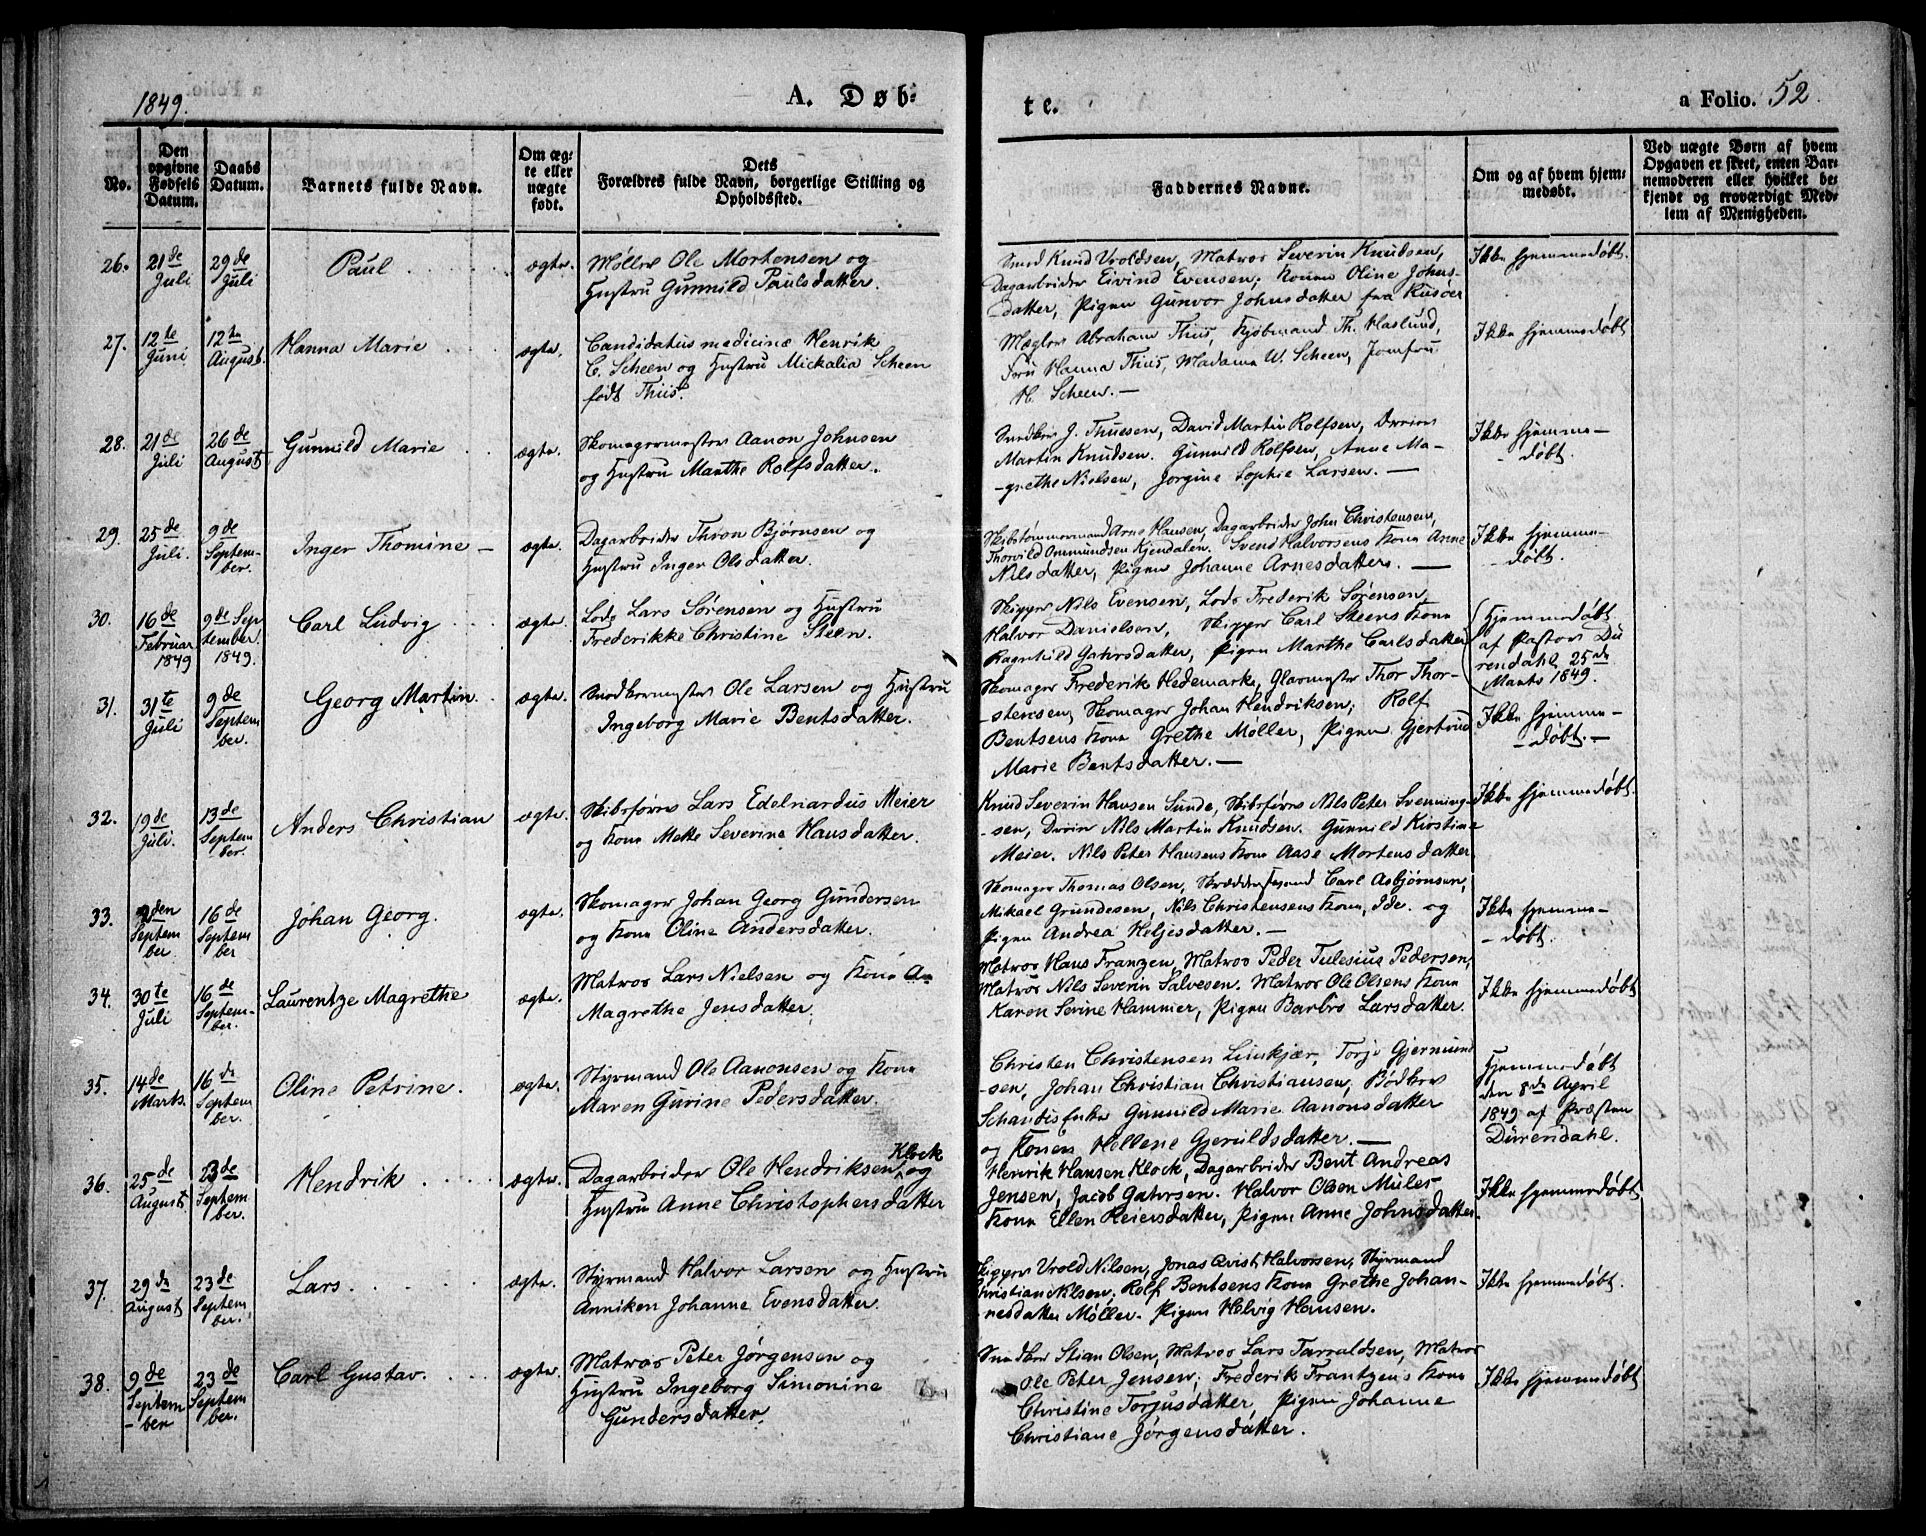 1849.
A. Døb-
te.
a Folio. 52
No.
Den opgivne Fødsels Datum.
Daabs Datum.
Barnets fulde Navn.
Om ægte eller uægte født.
Dets
Forældres fulde Navn, borgerlige Stilling og
Opholdssted.
Faddernes Navne.
Om og af hvem hjemmedøbt.
Ved uægte Børn af hvem
Opgaven er skeet, enten Bar-
nemoderen eller hvilket be-
kjendt og troværdigt Med-
lem af Menigheden.
26.
21de
Juli
29de
Juli
Paul
ægte.
Møller Ole Mortensen og
Hustru Gunnild Paulsdatter.
Smed Knud Vroldsen, Matros Severin Knudsen,
Dagarbeider Eivind Evensen, Konen Oline Johns-
datter, Pigen Gunvor Johnsdatter fra Risøer
Ikke hjemmedøbt.
27.
12te
Juni
12te
August
Hanna Marie
ægte.
Candidatus medicinæ Henrik
C. Scheen og Hustru Mickalia Scheen
født Thiis.
Mægler Abraham Thiis, Kjøbmand Th. Haslund,
Fru Hanna Thiis, Madame W. Scheen, Jomfru
H. Scheen. —
Ikke hjemmedøbt
28.
21de
Juli
26de
August
Gunnild Marie
ægte.
Skomagermester Aanon Johnsen
og Hustru Marthe Rolfsdatter.
Snedker J. Thuesen, David Martin Rolfsen,
Martin Knudsen. Gunnild Rolfsen, Anne Ma-
-grethe Nielsen, Jorgine Sophie Larsen. —
Ikke hjemme-
- døbt.
29.
25de
Juli.
9de
Septem-
ber.
Inger Thomine —
ægte.
Dagarbeider Thron Bjørnsen og
Hustru Inger Olsdatter.
Skibstømmermand Arne Hansen, Dagarbeider John Christensen,
Thorvild Ommundsen Kjendalen. Svend Halvorsens Kone Anne
Nilsdatter, Pigen Johanne Arnesdatter. —
Ikke hjemme-
- døbt.
30.
16de
Februar
1849
9de Sep
tember.
1849.
Carl Ludvig
ægte.
Lods Lars Sørensen og Hustru
Frederikke Christine Steen.
Skipper Nils Evensen, Lods Frederik Sørensen,
Halvor Danielsen, Skipper Carl Steens Kone
Ragnhild Gahrsdatter, Pigen Marthe Carlsdatter
Hjemmedøbt
af Pastor Dü
rendahl 25de
Marts 1849.
31.
31te
Juli
9de
Septem
ber.
Georg Martin
ægte.
Snedkermester Ole Larsen og Hustru
Ingeborg Marie Bentsdatter.
Skomager Frederik Hedemark, Glarmester Thor Thor-
-stensen, Skomager Johan Hendriksen, Rolf
Bentsens Kone Grethe Møller, Pigen Gjertrud
Marie Bentsdatter. —
Ikke hjemme-
- døbt. —
32.
19de
Juli.
13de
Septem
ber.
Anders Christian
ægte.
Skibsfører Lars Edelnardus Meier
og Kone Mette Severine Hansdatter.
Knud Severin Hansen Sunde, Skibsfører Nils Peter Svenning-
-sen, Nils Martin Knudsen. Gunnild Kirstine
Meier. Nils Peter Hansens Kone Aase Mortensdatter
Ikke hjemmedøbt.
33.
2den
Septem
ber
16de
Septem
ber
Johan Georg.
ægte.
Skomager Johan Georg Gundersen
og Kone Oline Andersdatter.
Skomager Thomas Olsen, Skræddersvend Carl Asbjørnsen,
Mikael Grundesen, Nils Christensens Kone, Ide. og
Pigen Andrea Heljesdatter. —
Ikke hjemme-
- døbt.
34.
30te
Juli
16de
Septem-
ber.
Laurentze Magrethe
ægte.
Matros Lars Nielsen og Kone A.
Magrethe Jensdatter.
Matros Hans Franzen, Matros Peder Tulesius Pedersen,
Matros Nils Severin Salvesen. Matros Ole Olsens Kone
Karen Serine Hammer, Pigen Barbro Larsdatter.
Ikke hjemmedøbt
35.
14de
Marts.
16de
Septem
ber.
Oline Petrine.
ægte.
Styrmand Ole Aanonsen og Kone
Maren Gurine Pedersdatter.
Christen Christensen Limkjær, Torje Gjermund
-sen, Johan Christian Christiansen, Bødker
Schandis Enke Gunnild Marie Aanonsdatter
og Konen Hellene Gjeruldsdatter. —
Hjemmedøbt
den 8de April
1849 af Præsten
Dürendahl.
36.
25de
August
23de
Septem
ber.
Hendrik
ægte.
Klock
Dagarbeider Ole Hendriksen, og
Hustru Anne Christophersdatter
Henrik Hansen Klock, Dagarbeider Bent Andreas
Jensen, Jacob Gahrsen. Halvor Olsen Mules
Kone Ellen Reiersdatter, Pigen Anne Johnsdatter.
Ikke hjemmedøbt
37.
29de
August
23de
Septem
ber.
Lars.
ægte.
Styrmand Halvor Larsen og Hustru
Anniken Johanne Evensdatter.
Skipper Vrold Nilsen, Jonas Qvist Halvorsen, Styrmand
Christian Nilsen. Rolf Bentsens Kone Grethe Johan-
nesdatter Møller. Pigen Helvig Hansen.
Ikke hjemmedøbt.
38.
9de
Septem
- ber
23de
Septem
ber.
Carl Gustav.
ægte.
Matros Peter Jørgensen og
Hustru Ingeborg Simonine
Gundersdatter.
Snedker Stian Olsen, Matros Lars Tarraldsen, Matros
Ole Peter Jensen; Frederik Frantzens Kone
Christine Torjusdatter, Pigen Johanne
Christiane Jørgensdatter.
Ikke hjemmedøbt